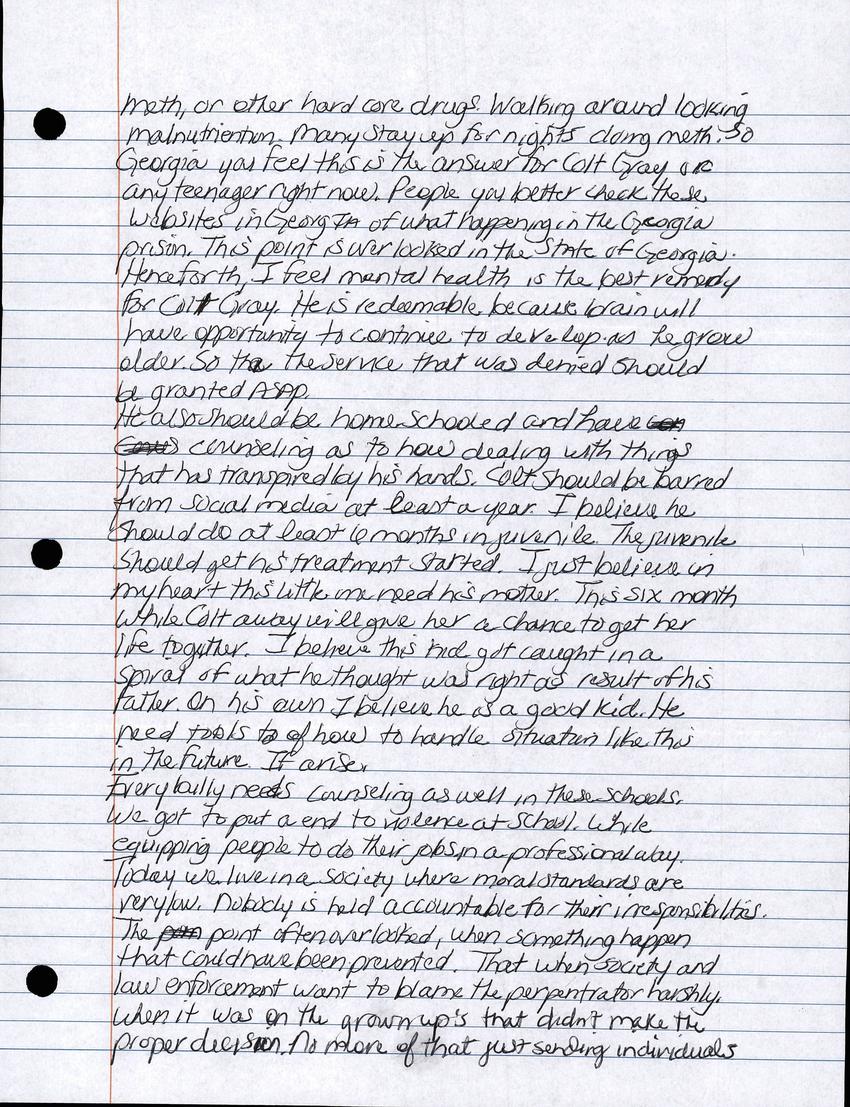 meth, or other hard core drugs. Walking around looking
malnutriention. Many stay up for nights doing meth. So
Georgia you feel this is the answer for Colt Gray or
any teenager right now. People you better check these
websites in Georgia of what happening in the Georgia
prison. This point is overlooked in the State of Georgia.
Henceforth, I feel mental health is the best remedy
for Colt Gray. He is redeemable because brain will
have opportunity to continue to develop as he grow
older. So the the service that was denied should
be granted ASAP.
He also should be home schooled and have
counseling as to how dealing with things
that has transpired by his hands. Colt should be barred
from social media at least a year. I believe he
should do at least 6 months in juvenile. The juvenile
should get his treatment started. I just believe in
my heart this little me need his mother. This six month
while Colt away will give her a chance to get her
life together. I believe this kid got caught in a
spiral of what he thought was right as result of his
father. On his own I believe he is a good kid. He
need tools to of how to handle situation like this
in the future. If arise.
Every bully needs counseling as well in these schools.
We got to put a end to violence at school. While
equipping people to do their jobs in a professional way.
Today we live in a society where moral standards are
very low. Nobody is held accountable for their irresponsibilities.
The point often overlooked, when something happen
that could have been prevented. That when society and
law enforcement want to blame the perpentrator harshly.
When it was on the grown up's that didn't make the
proper decision. No more of that just sending individuals